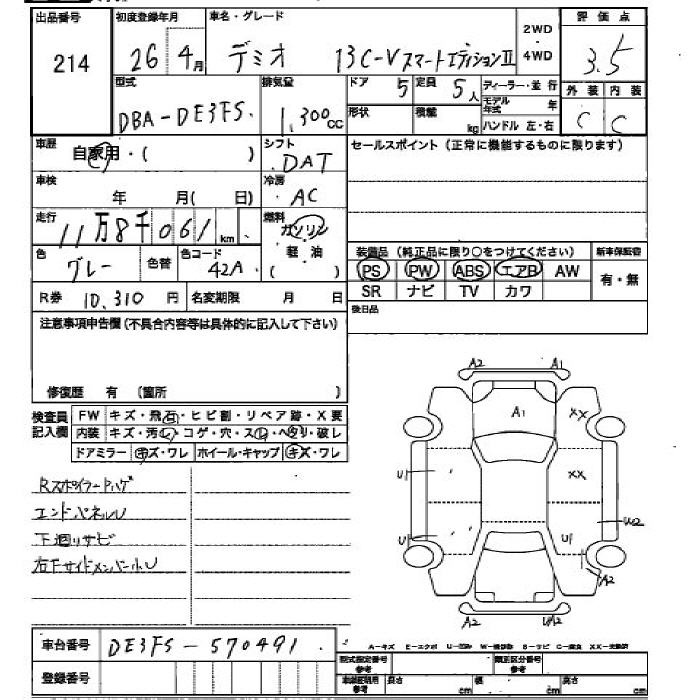 出品番号 初度登録年月 車名・グレード 2WD・4WD 評価点
214 26年4月 デミオ 13C-V スマートエディションII 3.5
型式 排気量 ドア 5 定員 5人 ディーラー・並行 外装 内装
DBA-DE3FS. 1,300cc 形状 積載 kg モデル年式 年 C C
ハンドル 左・右
車歴 自家用・( ) シフト DAT セールスポイント(正常に機能するものに限ります)
車検 年 月( 日) 冷房 AC
走行 11万8千061km 燃料 ガソリン・軽油 ( )
色 グレー 色替 色コード 42A 装備品(純正品に限り○をつけてください) 新車保証書
PS PW ABS エアB AW 有・無
R券 10,310円 名変期限 月 日 SR ナビ TV カワ
注意事項申告欄(不具合内容等は具体的に記入して下さい) 後日品
修復歴 有 (箇所 )
検査員記入欄 FW キズ・飛石・ヒビ割・リペア跡・X要
内装 キズ・汚れ・コゲ・穴・スレ・ヘタリ・破レ
ドアミラー キズ・ワレ ホイール・キャップ キズ・ワレ
Rスポイラーハゲ
エンドパネルU
下廻りサビ
右Fサイドメンバー小U
A2 A1
A1 XX
U1 XX
U1 U1 U2
A2
A2
車台番号 DE3FS-570491.
登録番号
A-キズ E-エクボ U-凹み
型式指定番号 参考 類別区分番号 参考
参考 長さ cm 幅 cm 高さ cm